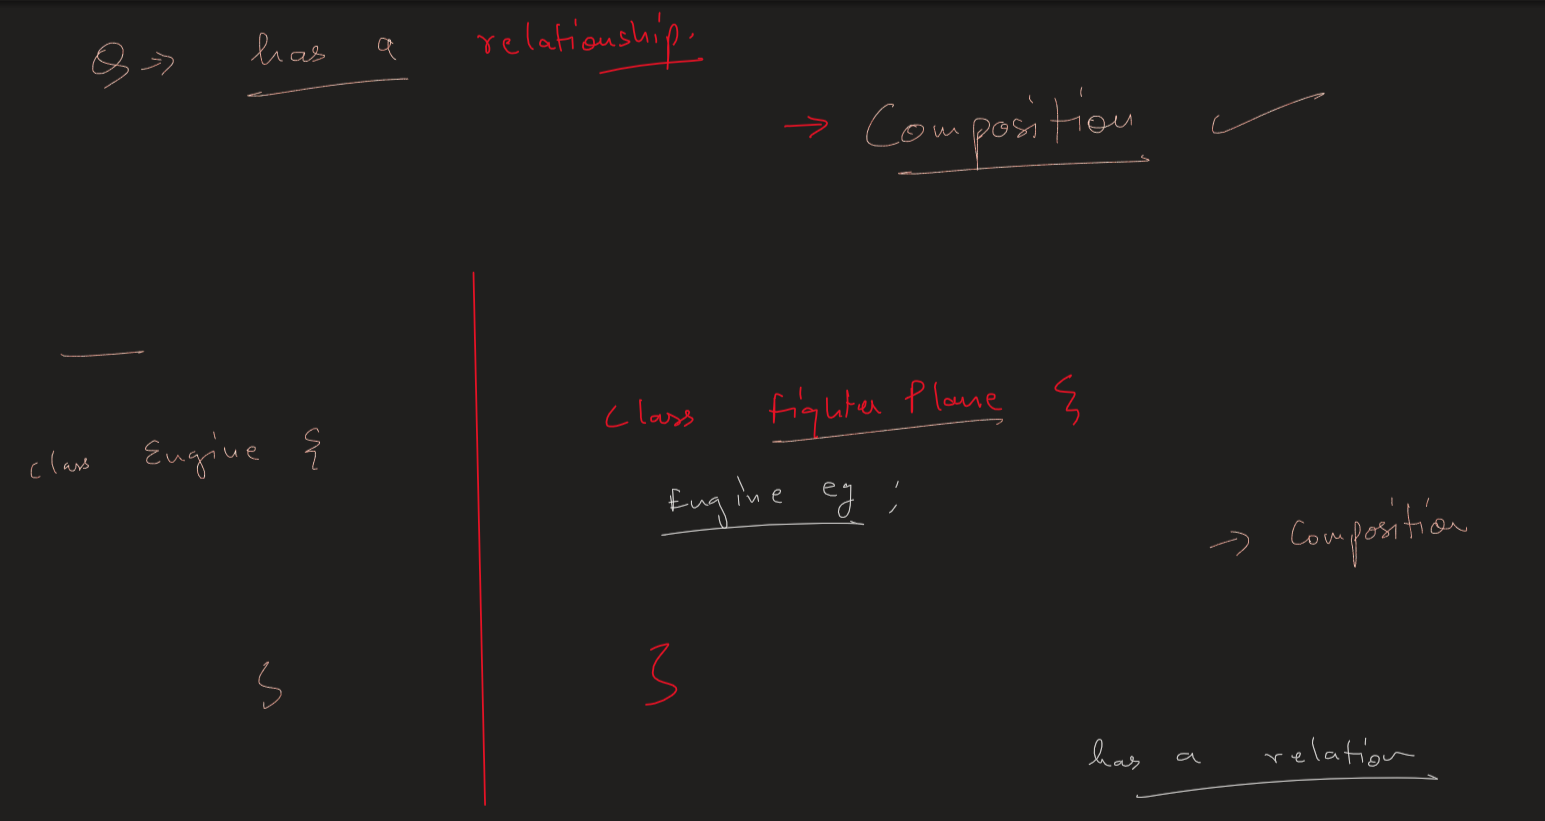 Q => has a relationship.
→ Composition ✓
class Engine {
}
class fighter Plane {
Engine eg ;
}
→ Composition
has a relation